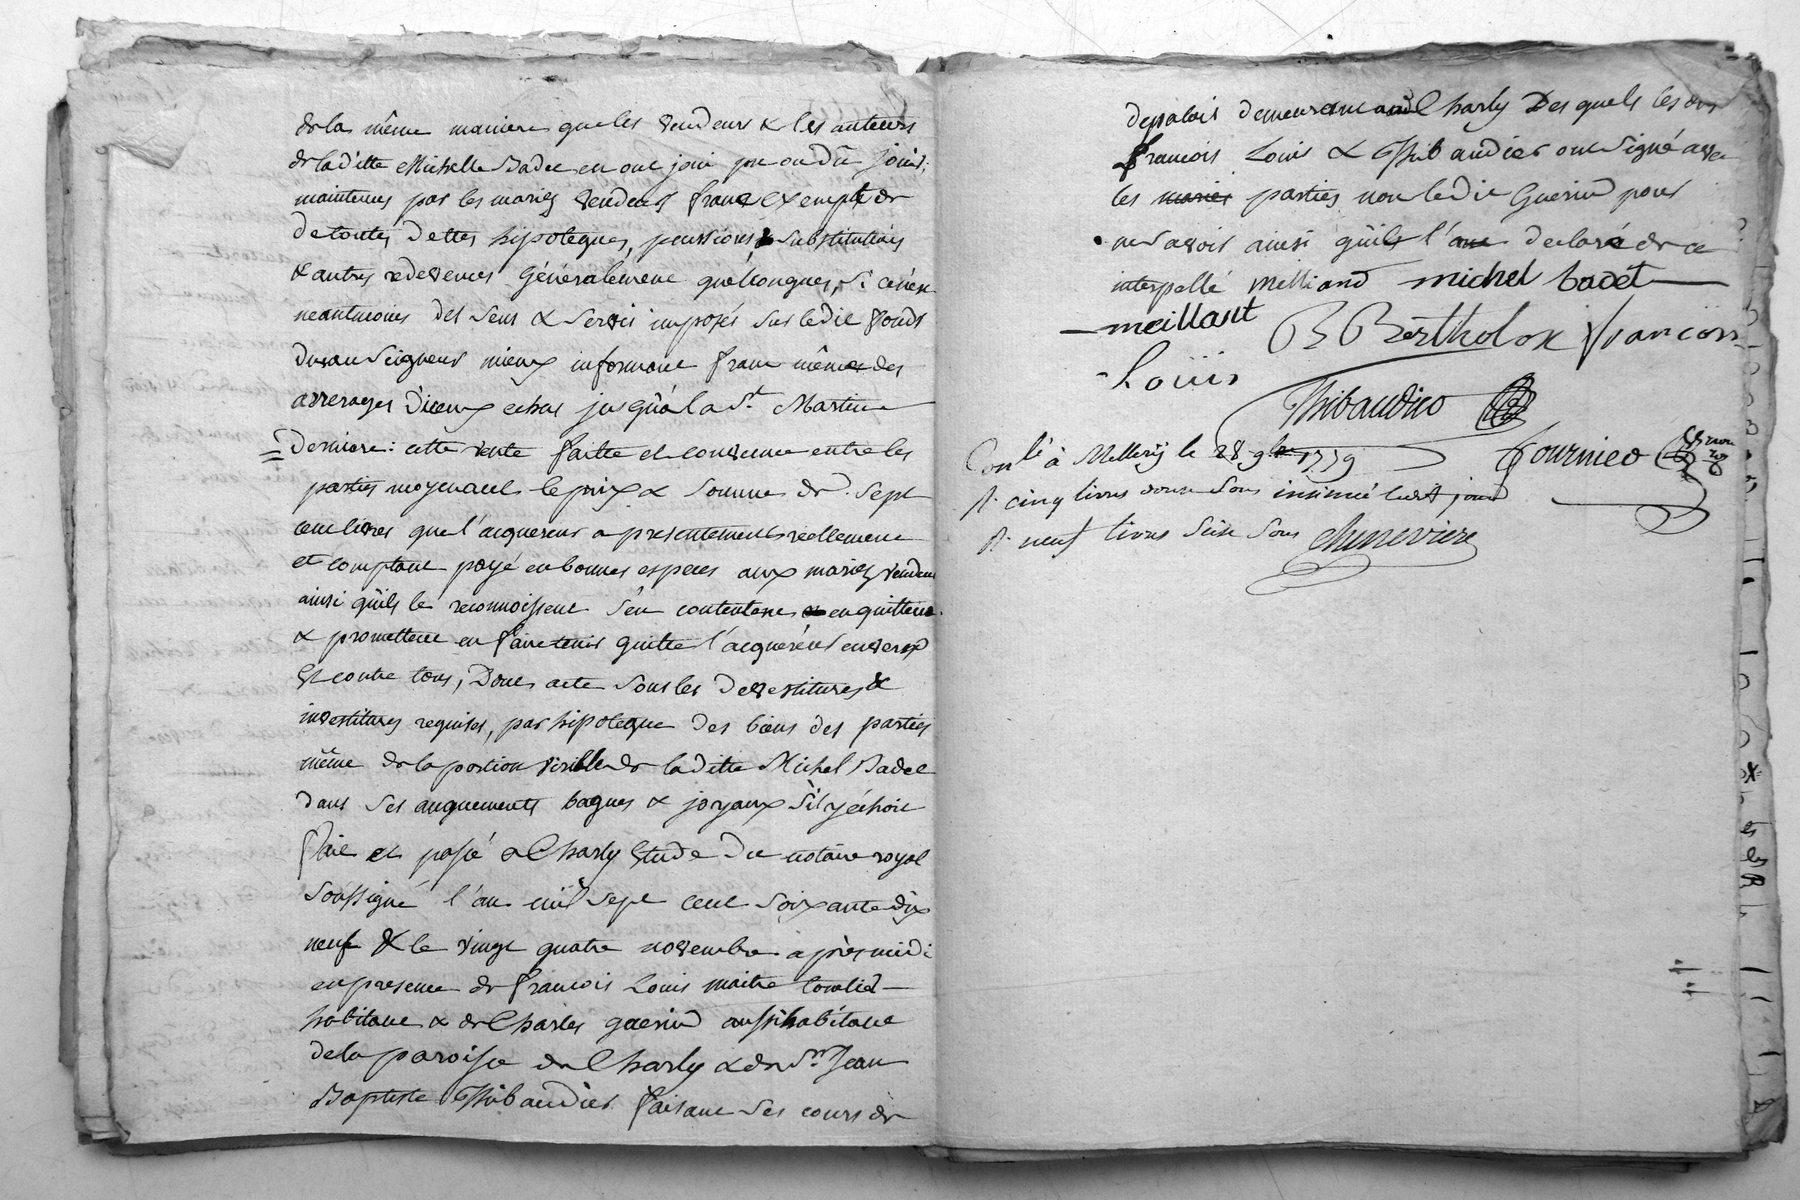 de la même maniere que les vendeurs & les auteurs
de laditte Michelle Badet en ont joui pu ou dû jouir,
maintenus par les mariez vendeurs franc exempt de
de toutes dettes hipoteques, pensions & substitutions
& autres redevences généralement quelconques, si ce n'est
neantmoins des sens & servis imposés sur ledit fonds
du au Seigneur mieux informant franc même des
arrerages d'iceux echus jusqu'à la St. Martin
derniere: cette vente faitte et convenue entre les
parties moyenant le prix & somme de sept
cent livres que l'acquereur a presentement réellement
et comptant payé en bonnes especes aux mariez vendeurs
ainsi qu'ils le reconnoissent s'en contentent en quittent
& promettent en faire tenir quitte l'acquéreur envers
et contre tous, Dont acte sous les devestitures &
investitures requises, par hipoteque des biens des parties
même de la portion virille de laditte Michel Badet
dans ses augments bagues & joyaux s'il y échoit
fait et passé a Charly Etude du notaire royal
soussigné l'an mil sept cent soixante dix
neuf & le vingt quatre novembre après midi
en presence de françois Louis maitre
habitant & de Charles guerin aussi habitant
de la paroisse de Charly & de Sr. Jean
Baptiste Thibaudier faisant ses cours de
depalais demeurant aud Charly Desquels lesdits
françois Louis & Thibaudier ont signé avec
les mariez parties non ledit Guerin pour
ne savoir ainsi qu'il l'a declaré de ce
interpellé Melliand michel badet
meillant B Bertholon françois
Louis
Thibaudier
Conlé à Millery le 28 9bre 1779 fournier
R cinq livres douze sous insinué ledit jour
R neuf livres seize sous Chinevriere